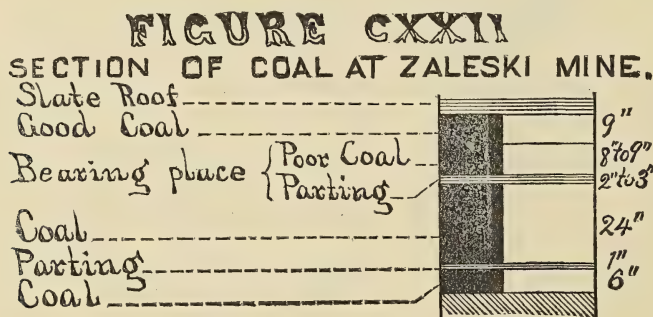 FIGURE CXXII
SECTION OF COAL AT ZALESKI MINE.
Slate Roof
Good Coal 9"
Bearing place { Poor Coal 8"to9"
Parting 2"to3"
Coal 24"
Parting 1"
Coal 6"